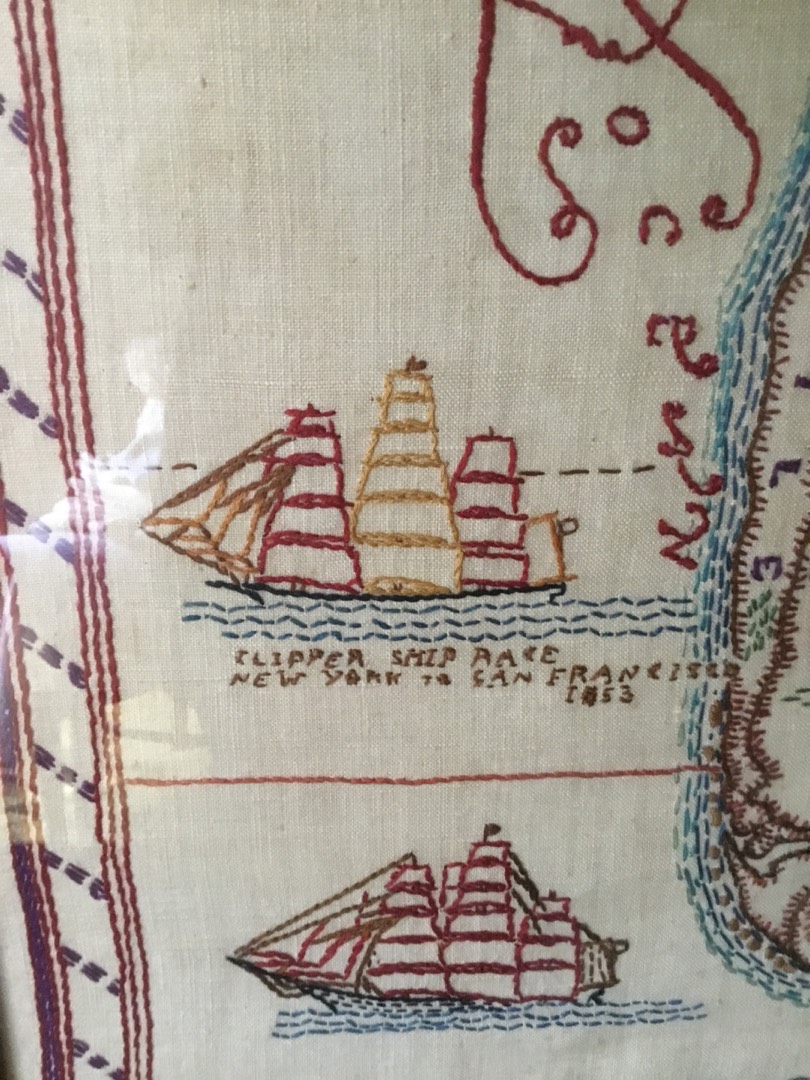 CLIPPER SHIP RACE
NEW YORK TO SAN FRANCISCO
1853